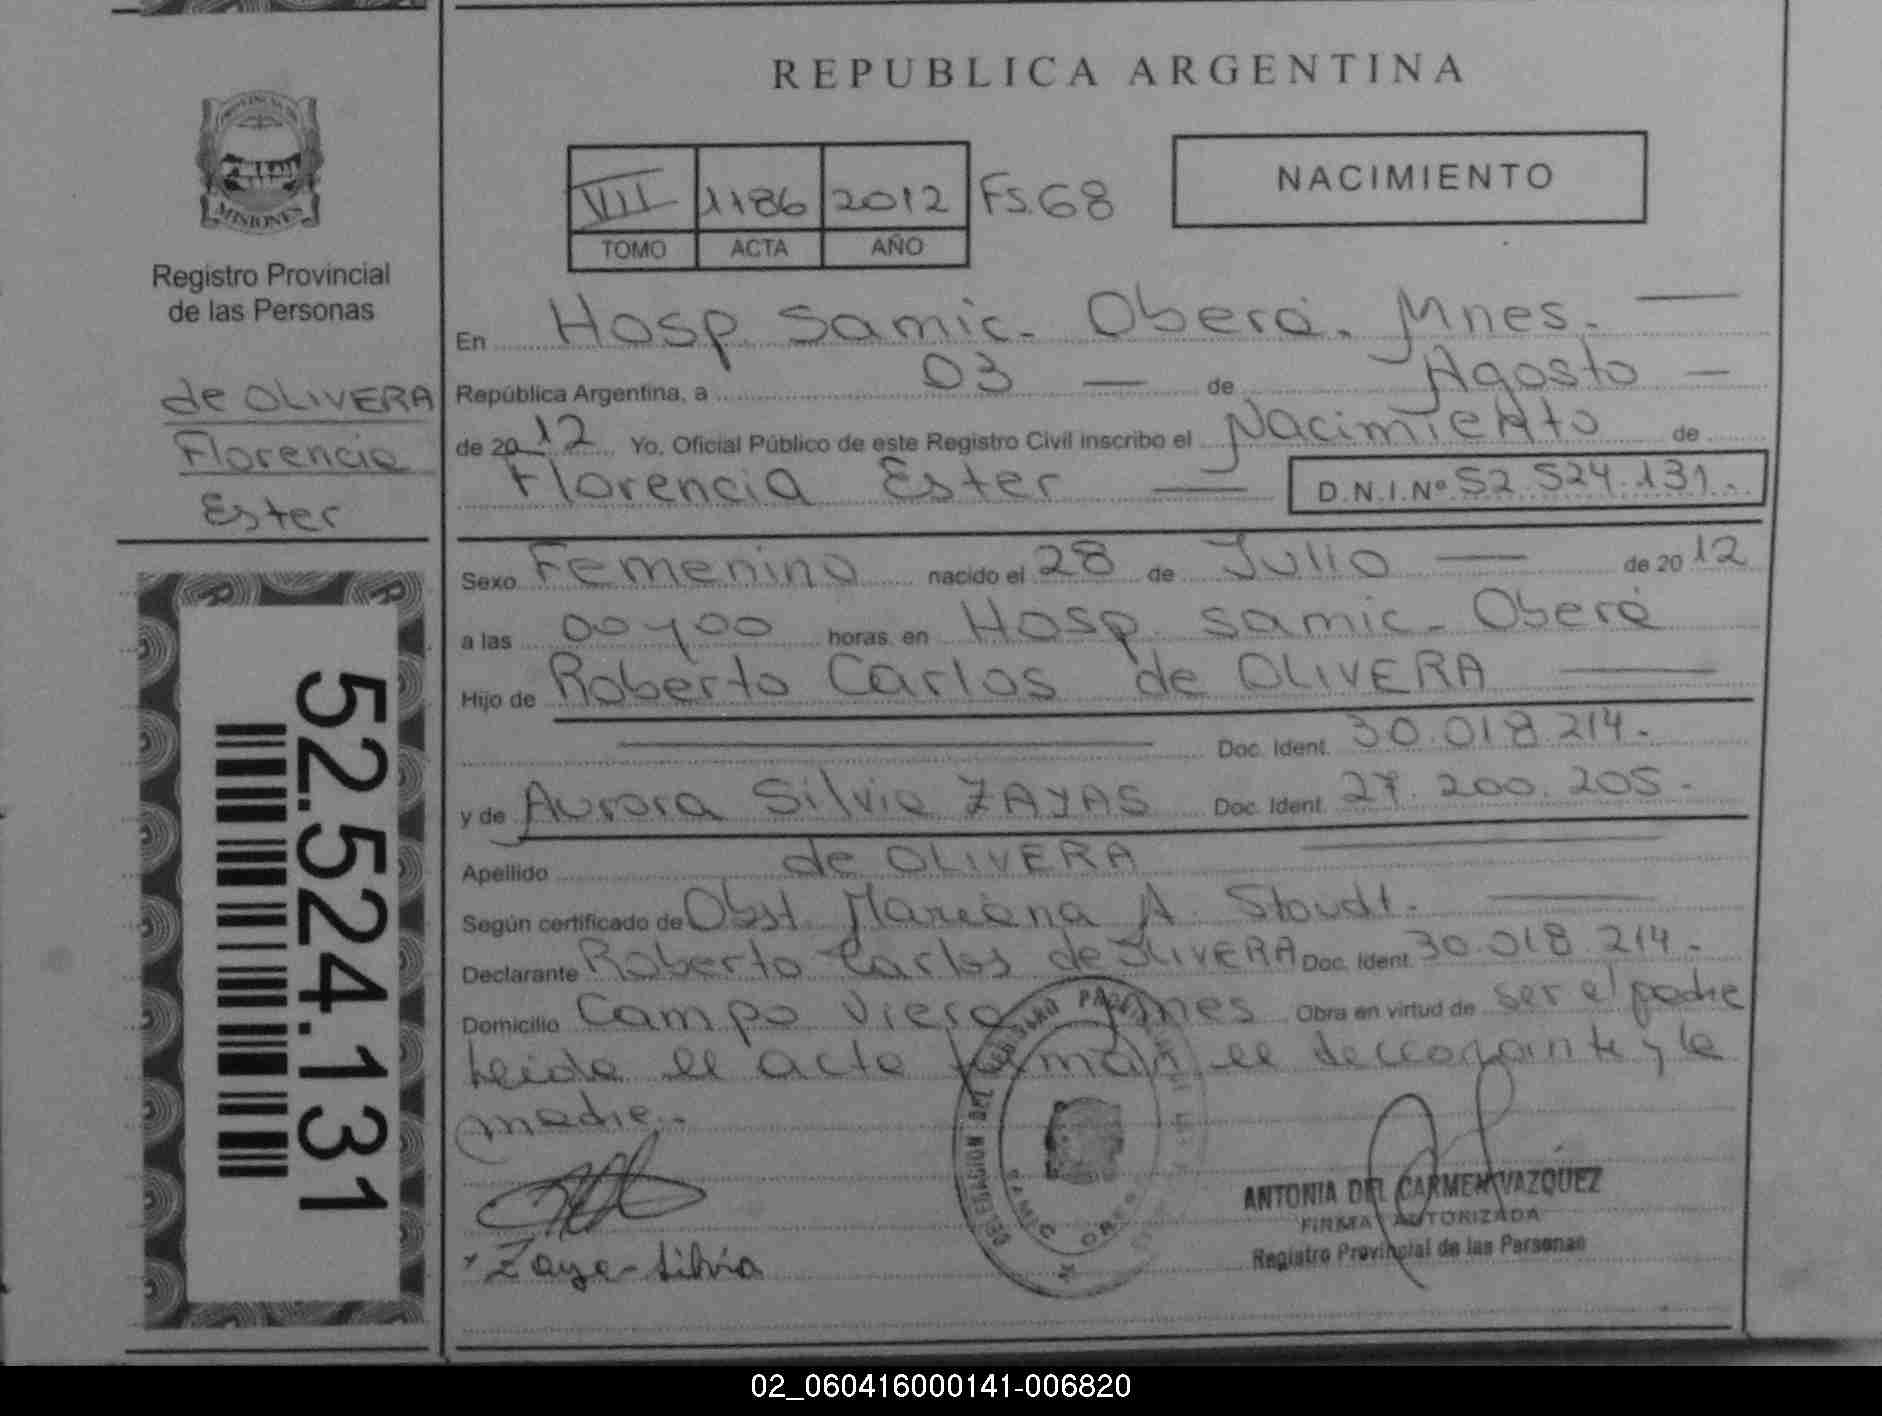 PROVINCIA DE
MISIONES
Registro Provincial
de las Personas
de OLIVERA
Florencia
Ester
52.524.131
REPUBLICA ARGENTINA
VIII 1186 2012 Fs.68
TOMO ACTA AÑO
NACIMIENTO
En Hosp. Samic. Oberá. Mnes.
República Argentina, a 03 de Agosto
de 2012 Yo, Oficial Público de este Registro Civil inscribo el Nacimiento de
Florencia Ester D.N.I.Nº 52.524.131.
Sexo Femenino nacido el 28 de Julio de 2012
a las 00 y 00 horas, en Hosp. Samic. Oberá
Hijo de Roberto Carlos de OLIVERA
Doc. Ident. 30.018.214.
y de Aurora Silvia ZAYAS Doc. Ident. 27.200.205.
Apellido de OLIVERA
Según certificado de Obst. Mariana A. Stoudt.
Declarante Roberto Carlos de OLIVERA Doc. Ident. 30.018.214.
Domicilio Campo Viera Mnes Obra en virtud de ser el padre
Leida el acta firman el declarante y la
madre.
Zaya Silvia
ANTONIA DEL CARMEN VAZQUEZ
FIRMA AUTORIZADA
Registro Provincial de las Personas
02_060416000141-006820